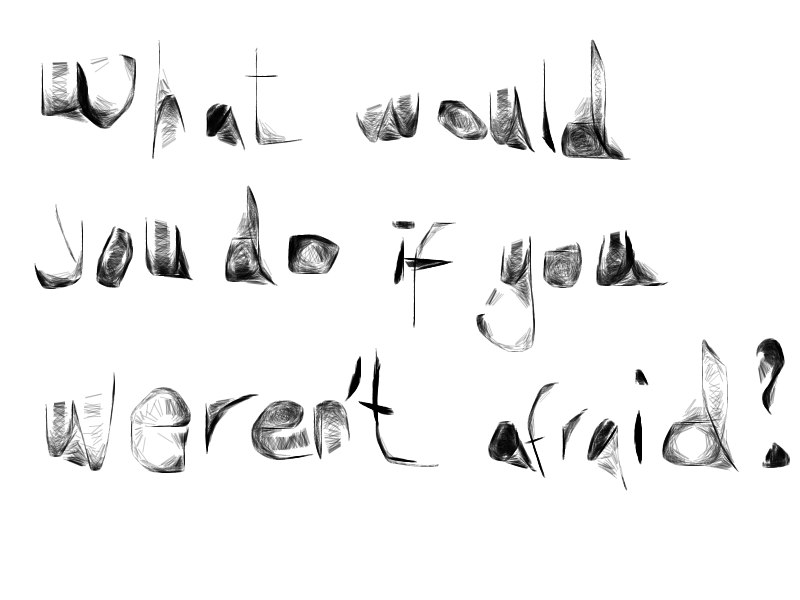 What would
you do if you
weren't afraid?